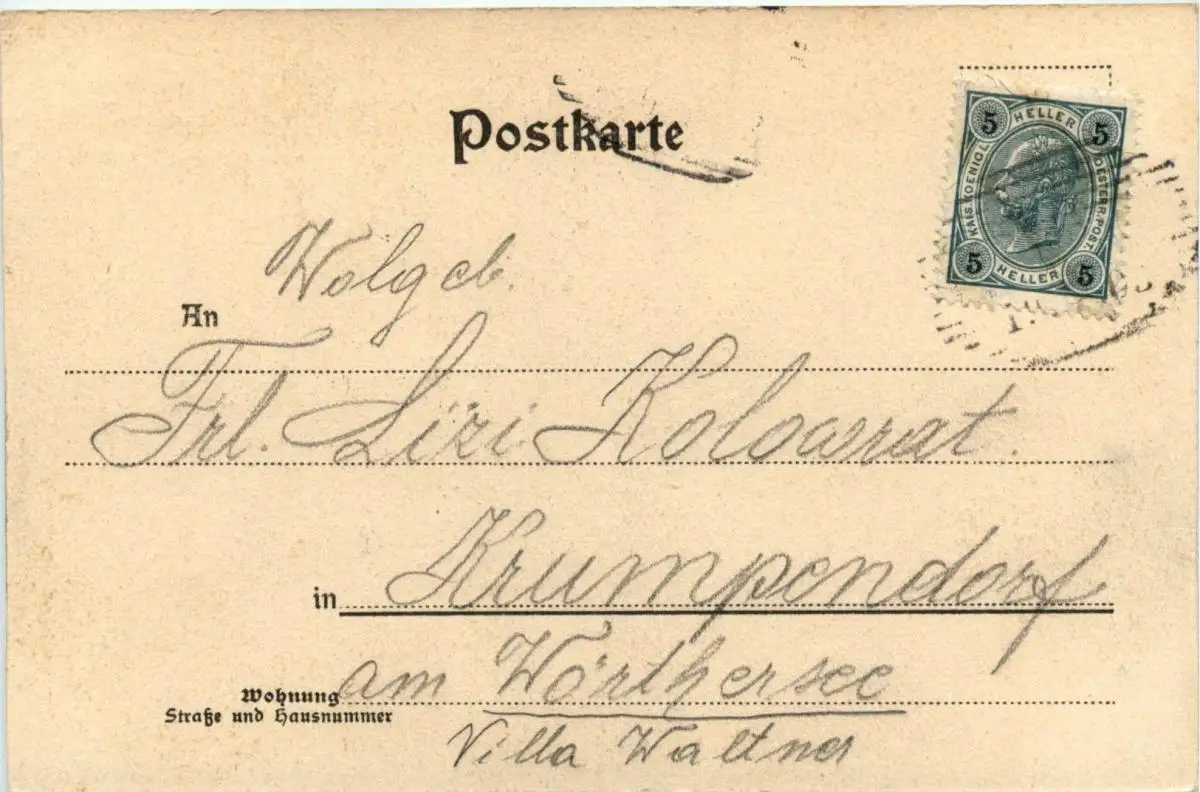 Postkarte
5 HELLER 5
KAIS. KOENIGL. OESTERR. POST.
5 HELLER 5
Wolgeb.
An
Frl. Lizi Kolowrat.
in Krumpendorf
am Wörthersee
Wohnung
Straße und Hausnummer
Villa Waltner